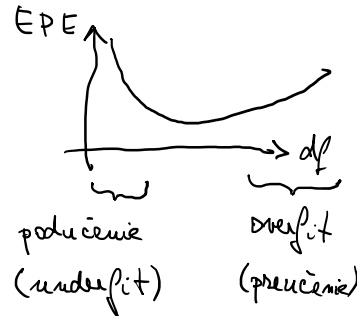 EPE
df
podučenie overfit
(underfit) (preučenie)